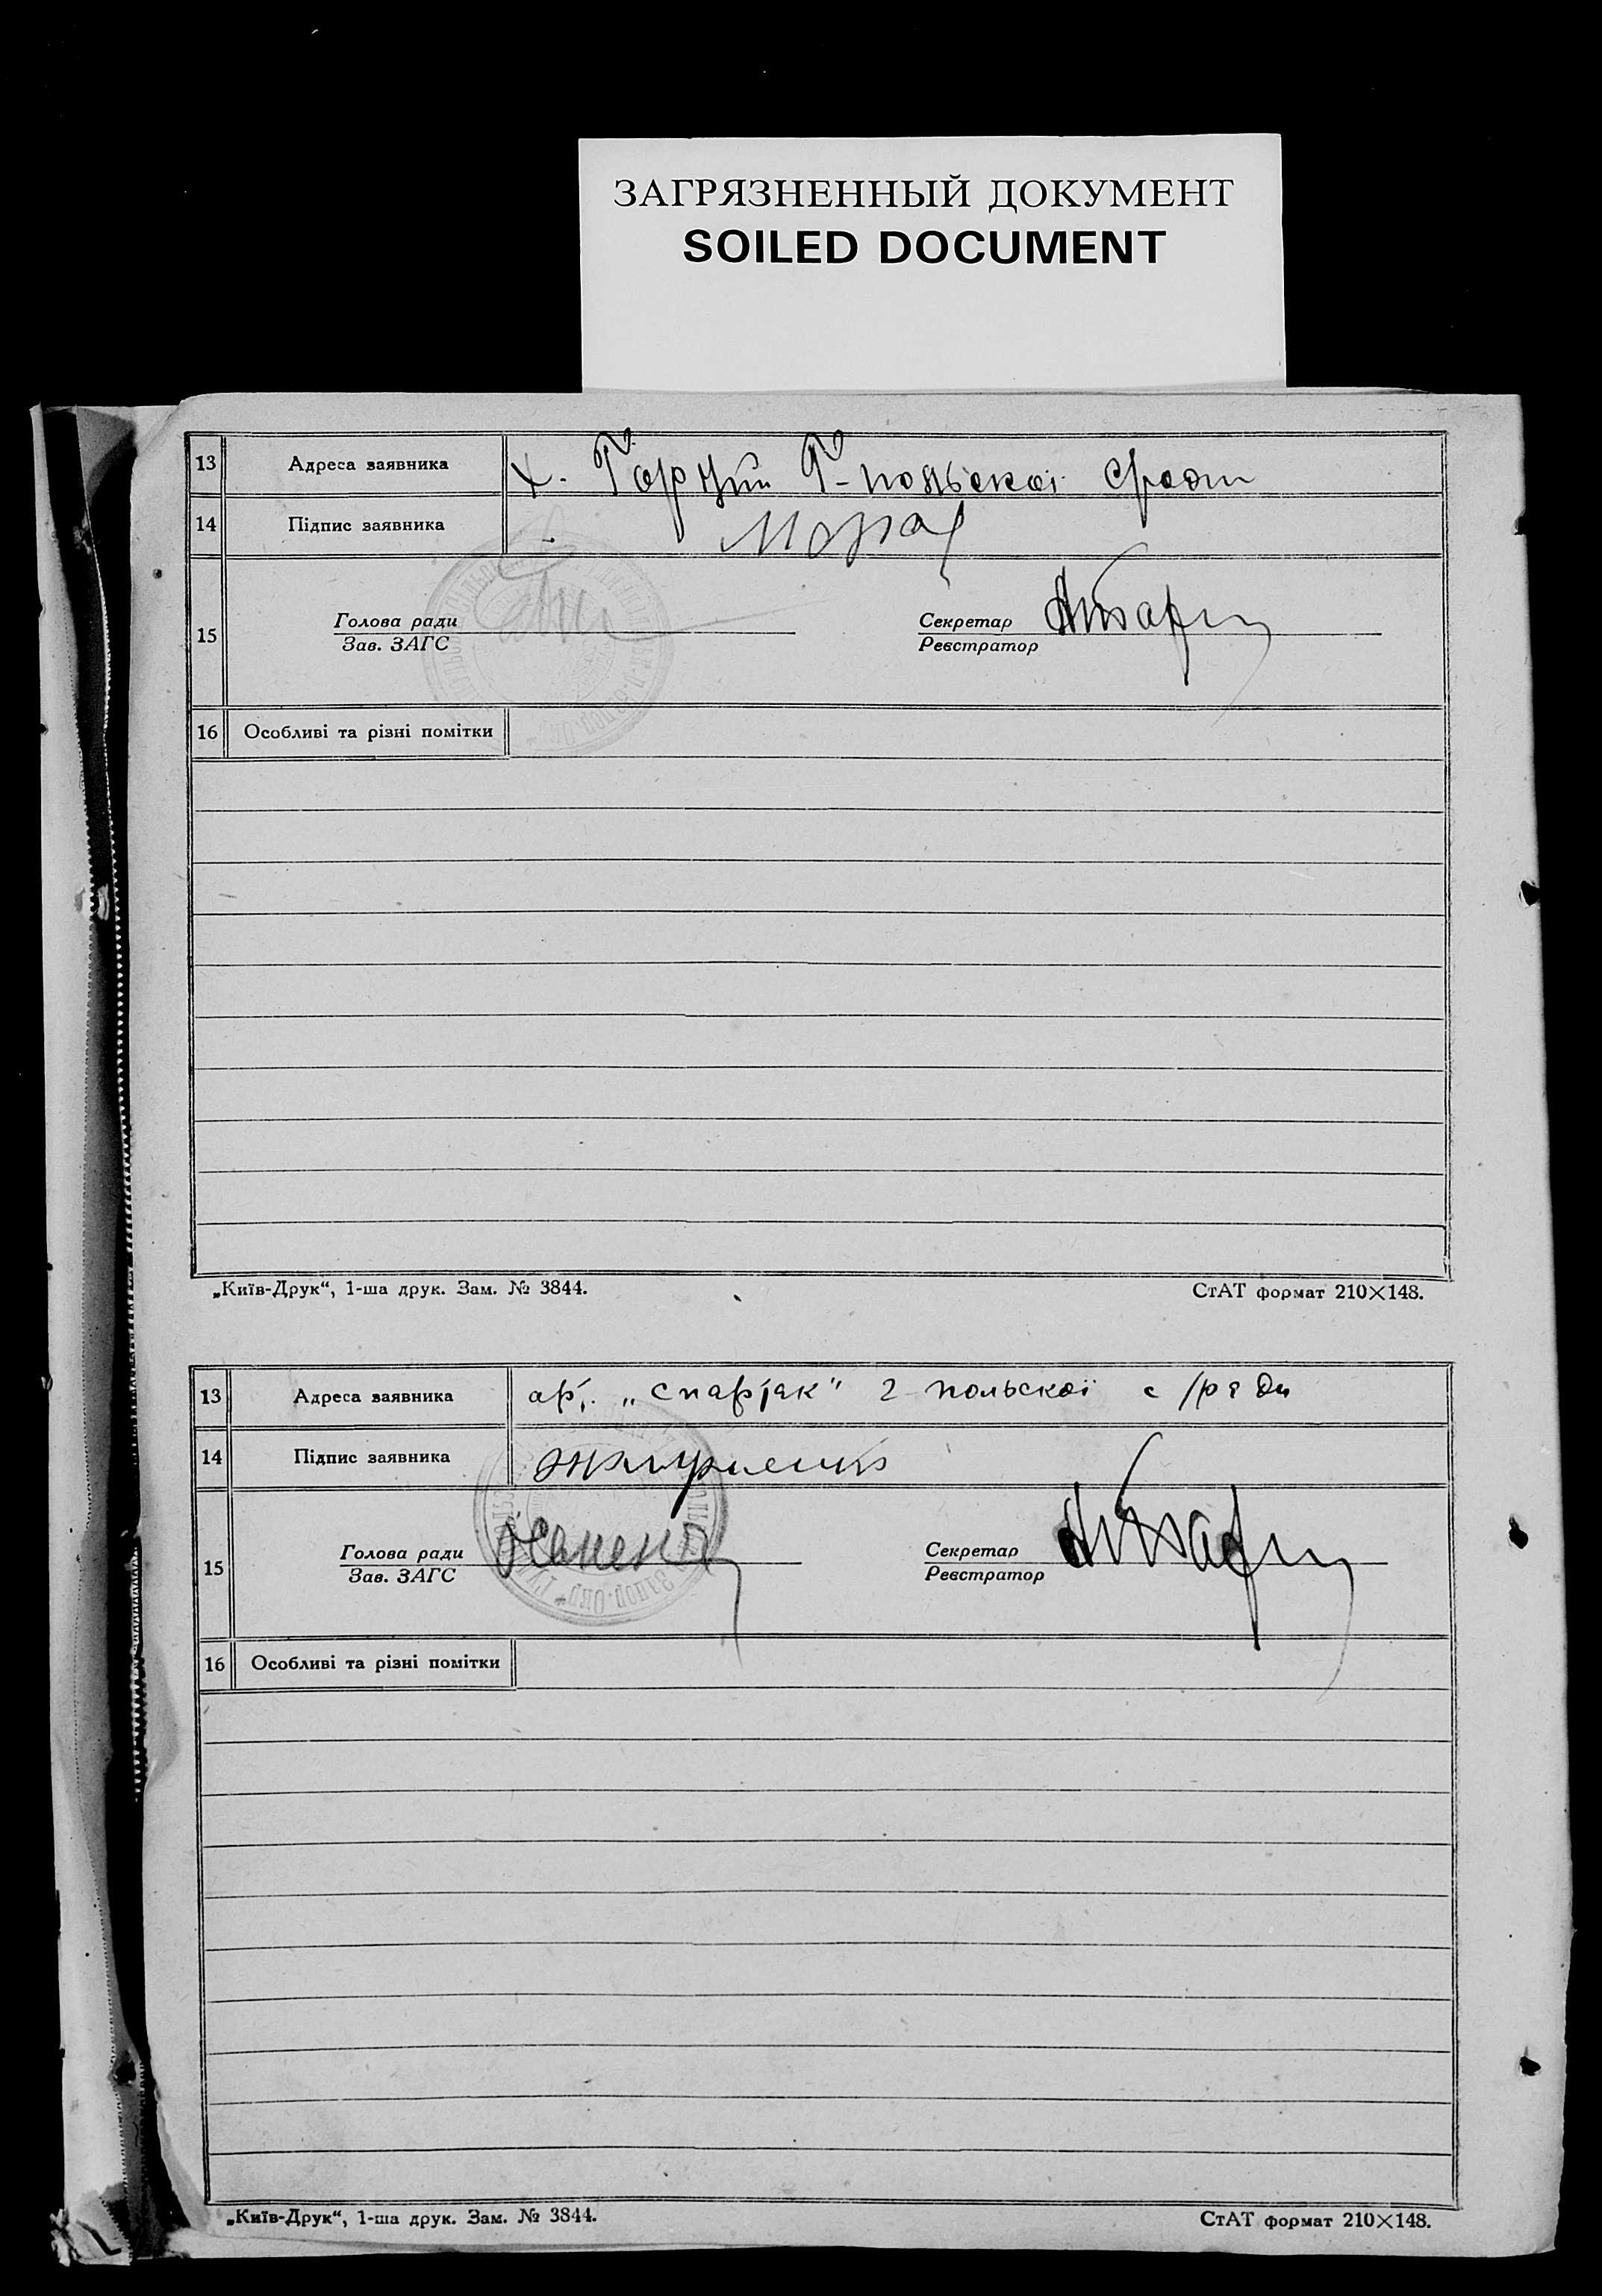 ЗАГРЯЗНЕННЫЙ ДОКУМЕНТ
SOILED DOCUMENT
13 Адреса заявника х. Г-польскої с/ради
14 Підпис заявника
15 Голова ради Секретар
Зав. ЗАГС Реєстратор
16 Особливі та різні помітки
„Київ-Друк“, 1-ша друк. Зам. № 3844. СтАТ формат 210×148.
13 Адреса заявника арт. „Спартак" Г-польскої с/ради
14 Підпис заявника
15 Голова ради Секретар
Зав. ЗАГС Реєстратор
16 Особливі та різні помітки
„Київ-Друк“, 1-ша друк. Зам. № 3844. СтАТ формат 210×148.